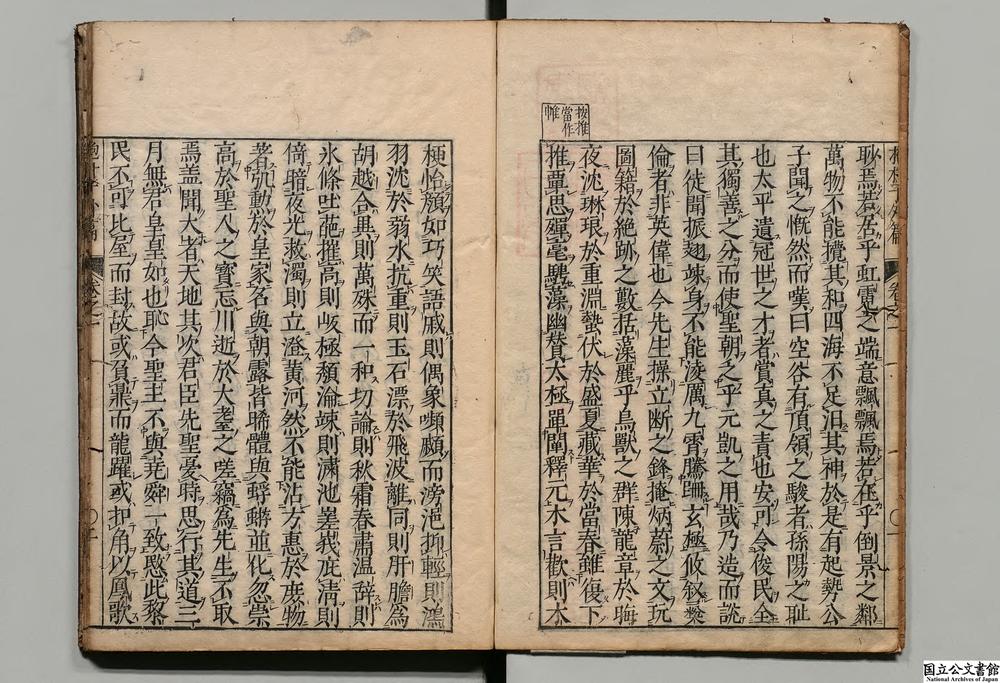 抱朴子外篇 卷之一
耿焉若居乎虹霓之端意飄飄焉若在乎倒景之鄰
萬物不能攪其和四海不足汨其神於是有起勢公
子聞之慨然而嘆曰空谷有項領之駿者孫陽之耻
也太平遺冠世之才者賞真之責也安可令俊民全
其獨善之分而使聖朝乏乎元凱之用哉乃造而說
曰徒聞振翅竦身不能凌厲九霄騰跚玄極攸敘彝
倫者非英偉也今先生操立断之鋒掩炳蔚之文玩
圖籍於絶跡之藪括藻麗乎鳥獸之群陳龍章於晦
夜沈琳琅於重淵蟄伏於盛夏藏華於當春雖復下
按推當作帷
推覃思殫毫騁藻幽賛太極單闡釋元本言歡則木
梗怡顏如巧笑語戚則偶象嚬顣而滂浥抑輕則鴻
羽沈於弱水抗重則玉石漂於飛波離同則肝膽為
胡越合異則萬殊而一和切論則秋霜春肅温辞則
氷條吐葩摧高則峻極頽淪竦則淵池嵳峩疵清則
倚暗夜光救濁則立澄黄河然不能沾方惠於庶物
著弘勳於皇家名與朝露皆晞體與蜉蝣並化忽崇
高於聖人之寶忘川逝於大耋之嗟竊為先生不取
焉盖聞大者天地其次君臣先聖憂時思行其道三
月無君皇皇如也恥今聖主不與堯舜一致愍此黎
民不可比屋而封故或負鼎而龍躍或扣角以鳳歌
抱朴子外篇 卷之一
国立公文書館
National Archives of Japan